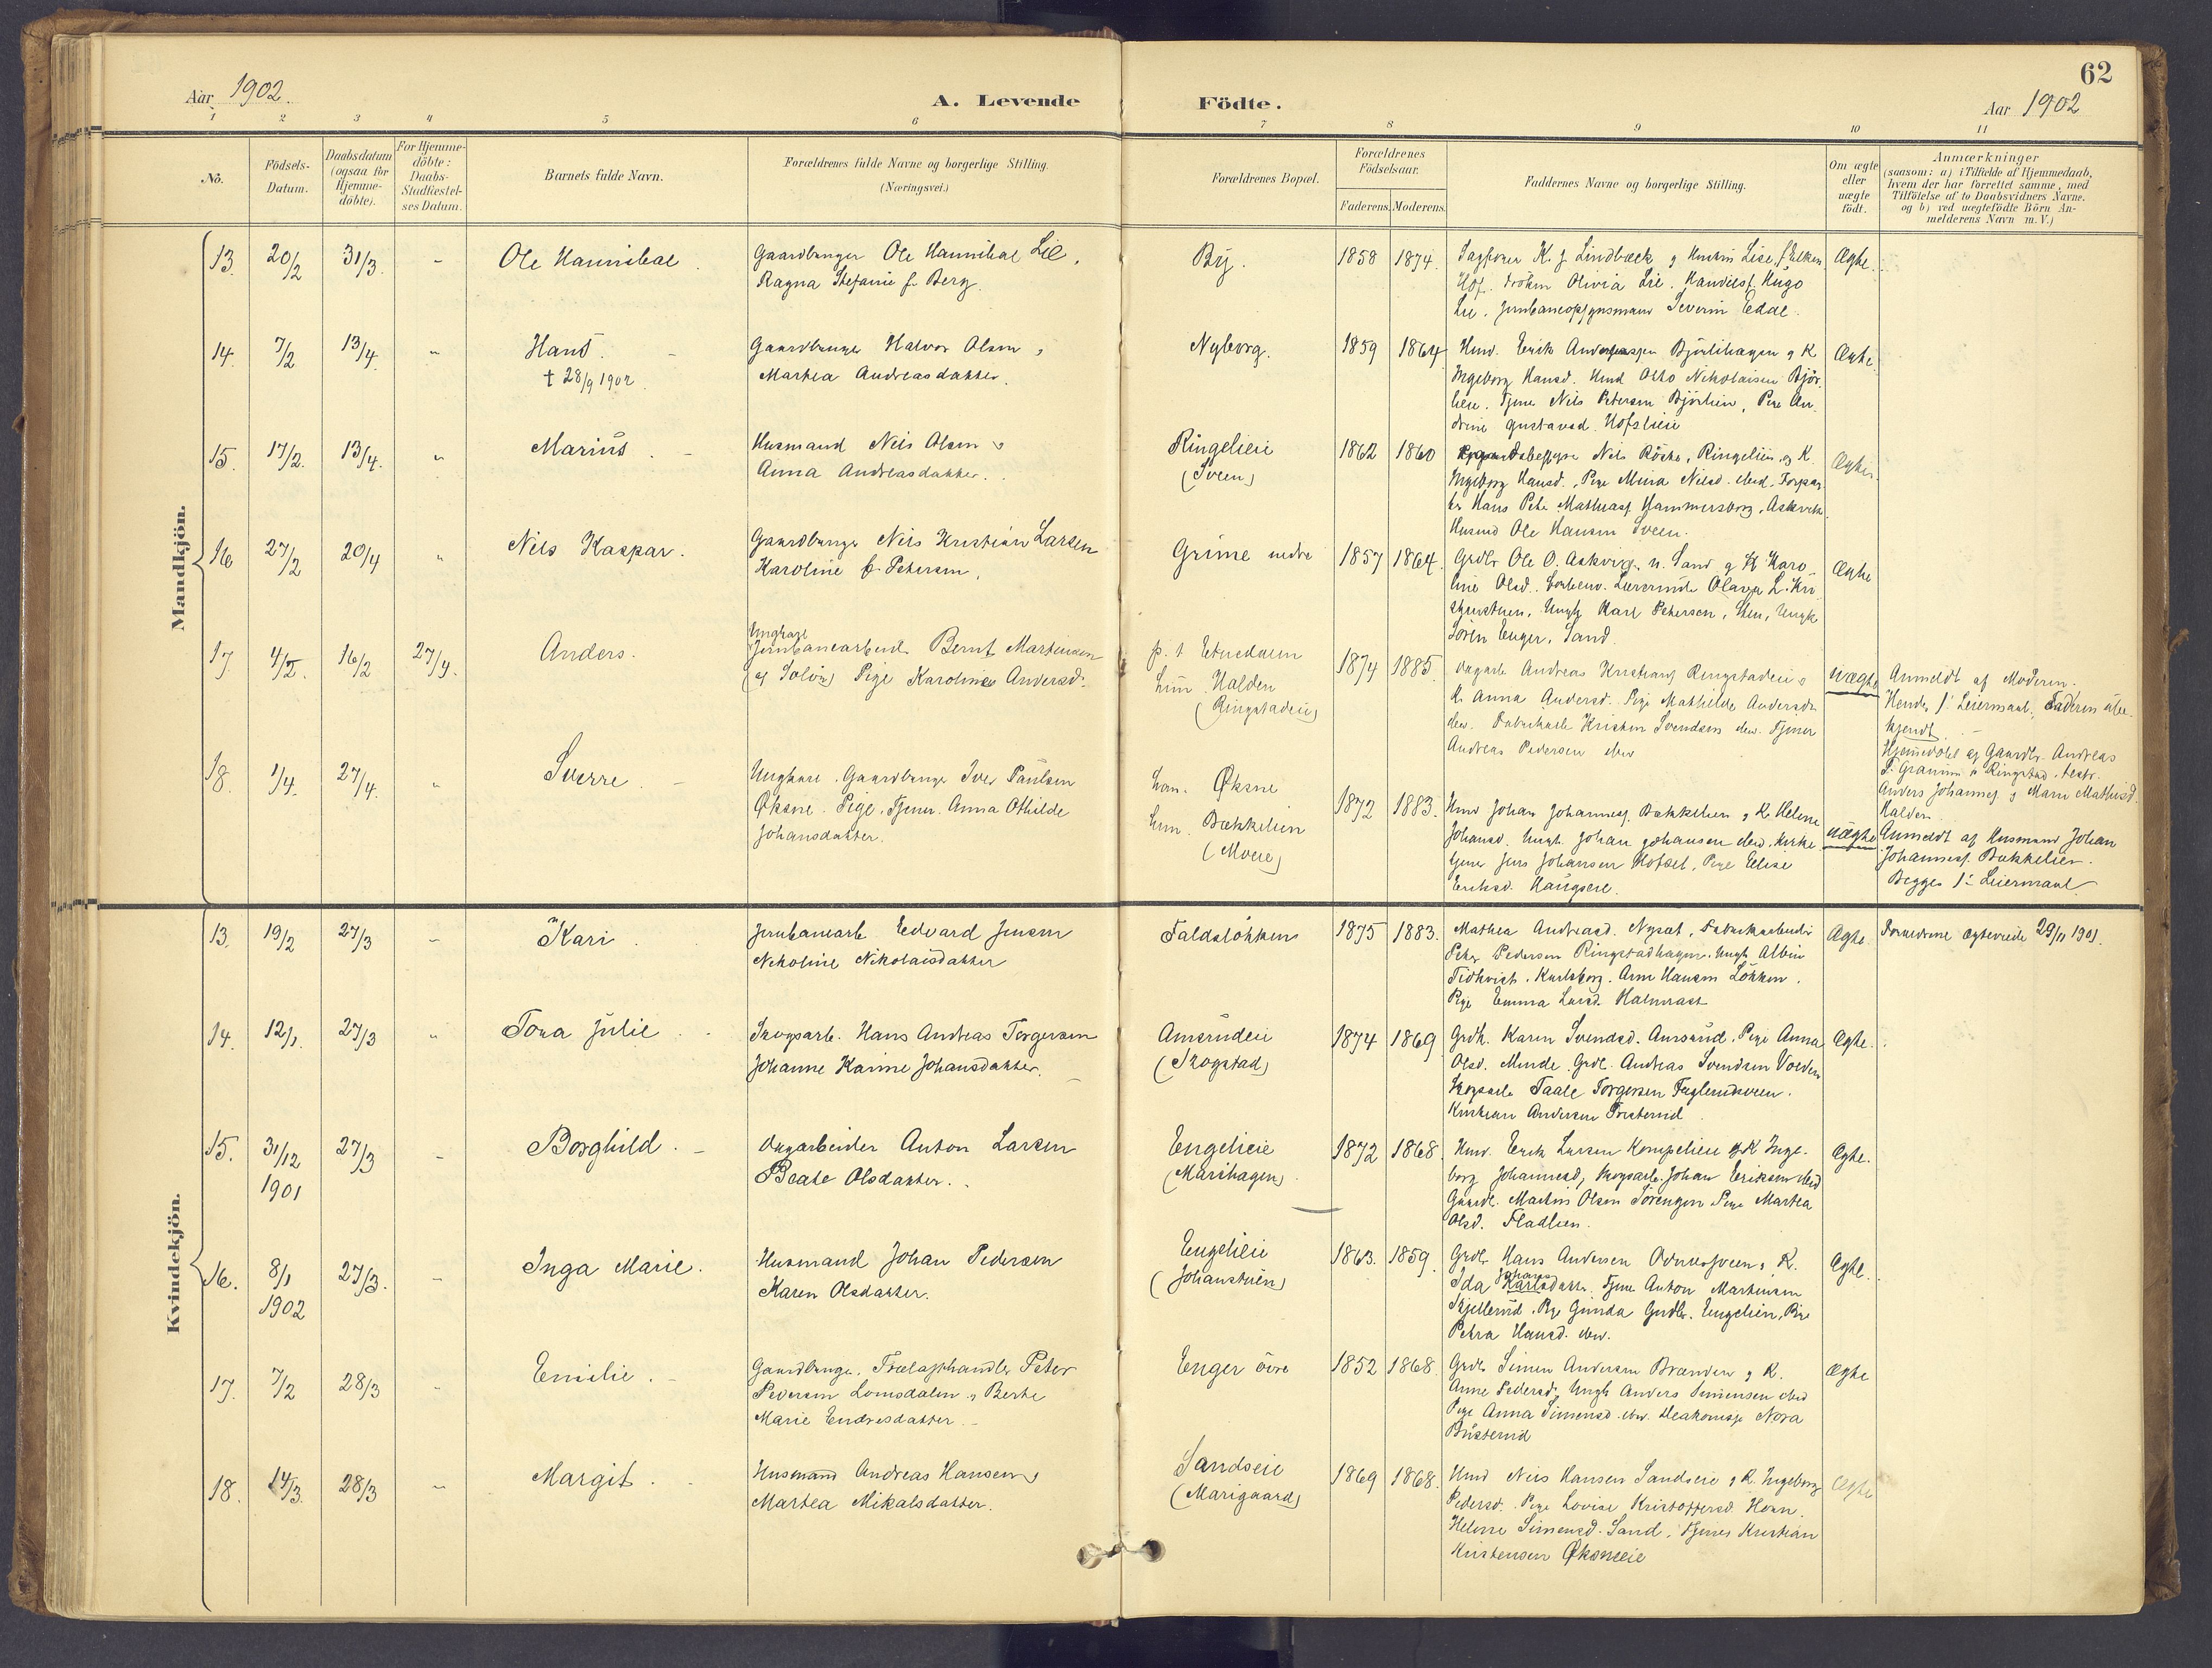 62
Aar 1902.
A. Levende
Födte.
Aar 1902
1 2 3 4 5 6 7 8 9 10 11
No.
Födsels-
Datum.
Daabsdatum
(ogsaa for
Hjemme-
döbte).
For Hjemme-
döbte:
Daabs-
Stadfæstel-
ses Datum.
Barnets fulde Navn.
Forældrenes fulde Navne og borgerlige Stilling.
(Næringsvei.)
Forældrenes Bopæl.
Forældrenes
Födselsaar.
Faderens. Moderens.
Faddernes Navne og borgerlige Stilling.
Om ægte
eller
uægte
født.
Anmærkninger
(saasom: a) i Tilfælde af Hjemmedaab,
hvem der har forrettet samme, med
Tilföielse af to Daabsvidners Navne,
og b) ved uægtefödte Börn An-
melderens Navn m. V.)
Mandkjön.
13. 20/2 31/3. -
Ole Hannibal.
Gaardbruger Ole Hannibal Lie,
Ragna Stefanie f. Berg.
By.
1858 1874.
Sagfører K. J. Lindbæck
Hof. Frøken Olivia Lie. Hugo
Lie. Severin
Ægte.
14. 7/2 13/4. "
Hans.
† 28/9 1902.
Gaardbruger Halvor Olsen,
Martea Andreasdatter.
Nyborg.
1859 1864
Hmd. Erik Bjørlihagen og K
Ingeborg Hansd. Hmd Otto Nikolaisen Bjør-
lien. Tjener Nils Petersen Bjørlien, Pige An-
drine Gustavsd. Hofslien
Ægte.
15. 17/2. 13/4. "
Marius.
Husmand Nils Olsen
Anna Andreasdatter.
Ringelieie
(Sveen)
1862 1860
Nils Röste, Ringelien og K.
Ingeborg Hansd., Pige Mina Nilsd.
Hans Peter Mathiass. Hammersborg, Askvik.
Husmd Ole Hansen Sveen.
Ægte.
16 27/2 20/4 "
Nils Kaspar.
Gaardbruger Nils Kristian Larsen
Karoline f. Petersen.
Grime nedre
1857 1864.
Grdbr Ole O. Askvig n. Sand og K Karo-
line Olsd. Lærerinde Olava L.
Ungk Karl Petersen, Ungk
Søren Enger, Sand.
Ægte
17 4/2. 16/2 27/4.
Anders.
Ungkarl
Jernbanearbeid. Bernt Martinsen
(af Solör) Pige Karoline Andersd.
p. t. Etnedalen
hun. Halden
(Ringstadeie)
1874 1885.
Dagarb. Andreas Kristians. Ringstadeie og
K. Anna Andersd. Pige Mathilde Andersd.
Fabrikarb Kristen Svendsen. Tjener
Andreas Pedersen
uægte
Anmeldt af Moderen.
Hendes 1ste Leiermaal. Faderen ube-
kjendt.
Hjemmedöbt af Gaardbr. Andreas
P. Granum paa Ringstad. testr.
Anders Johannes. og Maren Mathisd.
Halden
18. 1/4. 27/4. "
Sverre.
Ungkarl. Gaardbruger Iver Paulsen
Øksne. Pige. Tjener. Anna Othilde
Johansdatter.
han. Øksne
hun. Bækkelien
(Moeie)
1872 1883.
Hmd Johan Johanness. Bækkelien og K. Helene
Johansd. Ungk. Johan Johansen Kirke
tjener Jens Johansen Hofset, Pige Elise
Eriksd. Haugseie.
uægte
Anmeldt af Husmand Johan
Johanness. Bækkelien.
Begges 1ste Leiermaal
Kvindekjön.
13. 19/2 27/3 -
Kari.
Jernbanearb Edvard Jensen
Nikoline Nikolaisdatter
Faldsløkken
1875 1883.
Mathea Andreasd. Nysæt, Fabrikarbeider
Peter Pedersen Ringstadhagen. Ungk Albin
Tidkvist. Karlsborg. Arne Hansen Løkken.
Pige Emma Larsd. Halmrast
Ægte.
Forældrene ægteviede 29/11 1901.
14. 12/1. 27/3 "
Tora Julie.
Skogsarb. Hans Andreas Torgersen
Johanne Karine Johansdatter.
Amsrudeie
(Skogstad)
1874 1869
Grdk. Karen Svendsd. Amsrud. Pige Anna
Olsd. Minde. Grdb. Andreas Svendsen Volden
Skogsarb Taale Torgersen Fuglerudsveen.
Kristian Andersen Prestrud
Ægte.
15. 31/12 1901 27/3 -
Borghild.
Dagarbeider Anton Larsen
Beate Olsdatter.
Engelieie
(Marihagen)
1872 1868
Hmd. Erik Larsen Kompelien og K Inge-
borg Johannesd, Skogsarb. Johan Eriksen
Gaardb. Martin Olsen Sørengen Pige Martea
Olsd. Fladlien.
Ægte.
16. 8/1 1902 27/3. -
Inga Marie.
Husmand Johan Pedersen
Karen Olsdatter.
Engelieie
(Johanstuen)
1863. 1859.
Grdbr Hans Andersen K.
Ida Karlsdatter. Tjener Anton Martinsen
Skjellerud. Pige Gunda Gudbr. Engelien, Pige
Petra Hansd.
Ægte.
17. 7/2 28/3 -
Emilie.
Gaardbruger. Trælasthandler Peter
Pedersen Lomsdalen og Berte
Marie Endresdatter.
Enger övre
1852 1868
Grdbr Simen Andersen Brænden og K.
Anne Pedersd, Ungk Anders Simensen
Pige Anna Simensd. Diakonisse Nora
Busterud
Ægte
18. 14/3. 28/3 "
Margit.
Husmand Andreas Hansen,
Martea Mikalsdatter.
Sandseie
(Marigaard)
1869 1868.
Hmd Nils Hansen Sandseie og K. Ingeborg
Pedersd. Pige Lovise Kristoffersd. Hovn.
Helene Simensd. Sand, Tjener Kristian
Kristensen Øksneeie
Ægte